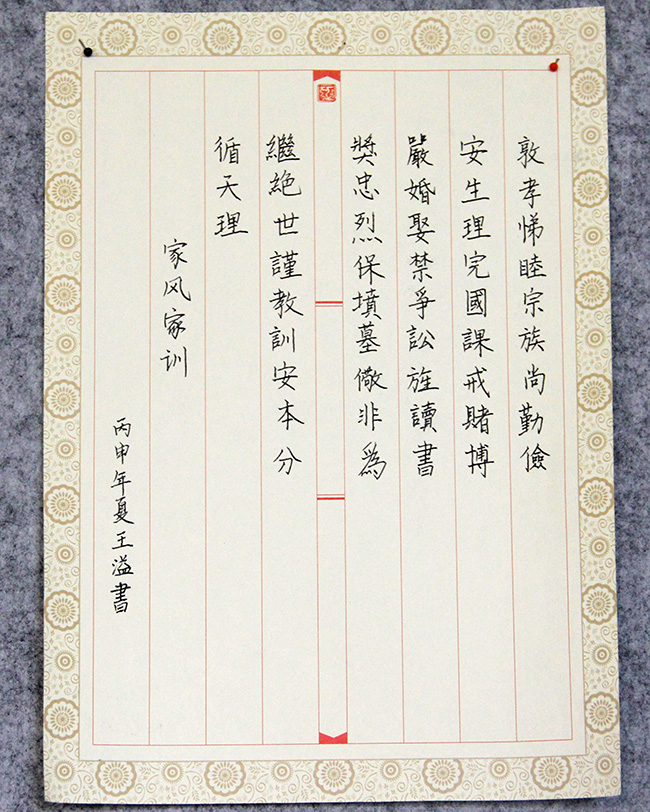 敦孝悌睦宗族尚勤儉
安生理完國課戒賭博
嚴婚娶禁爭訟旌讀書
奬忠烈保墳墓儆非爲
繼絶世謹教訓安本分
循天理
家风家训
丙申年夏王溢書